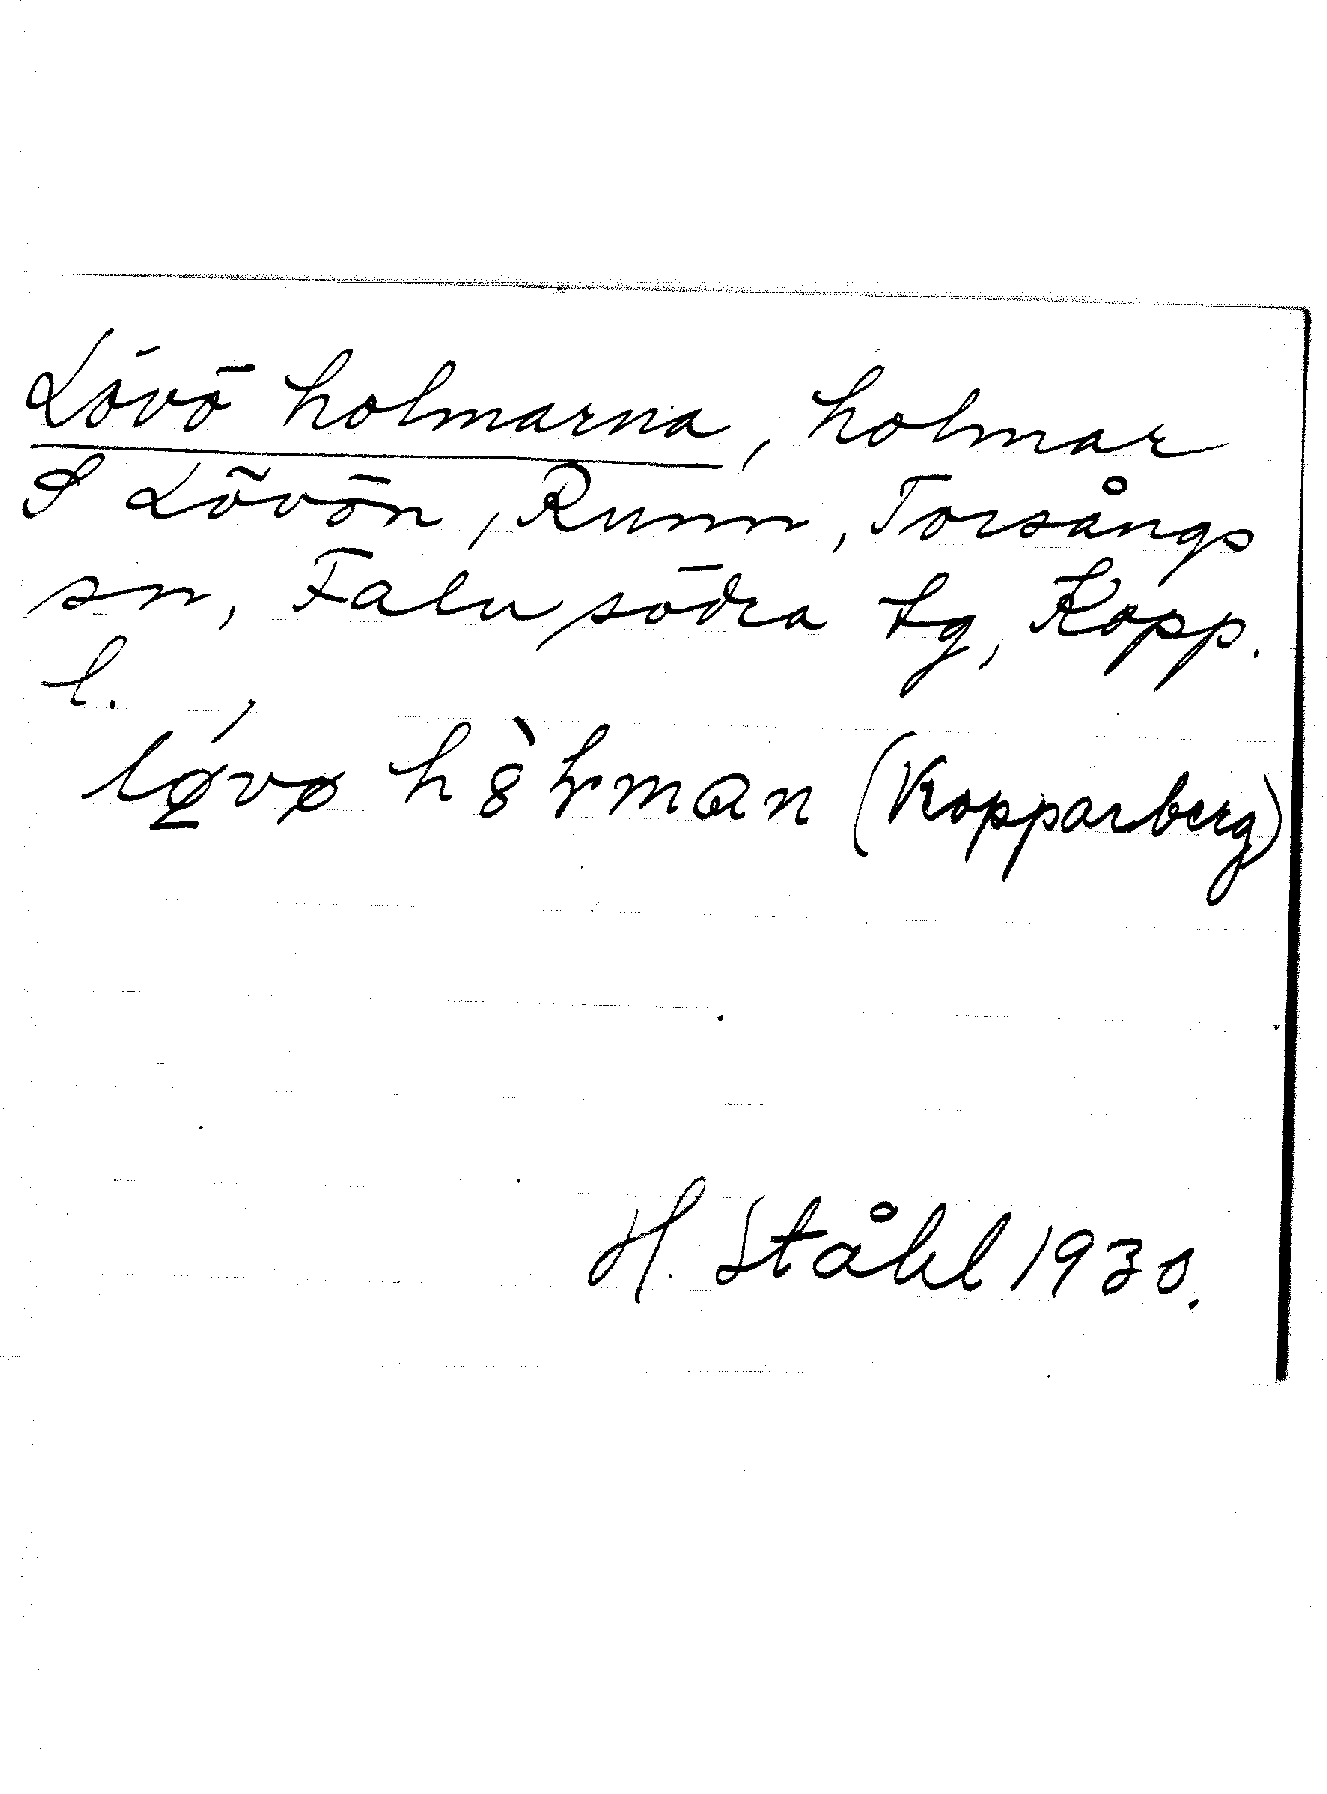 Lövö holmarna, holmar
S Lövön, Runn, Torsångs
sn, Falu södra tg, Kopp.
l.
lǿ̲vø hò̵ɫman (Kopparberg)
H. Ståhl 1930.